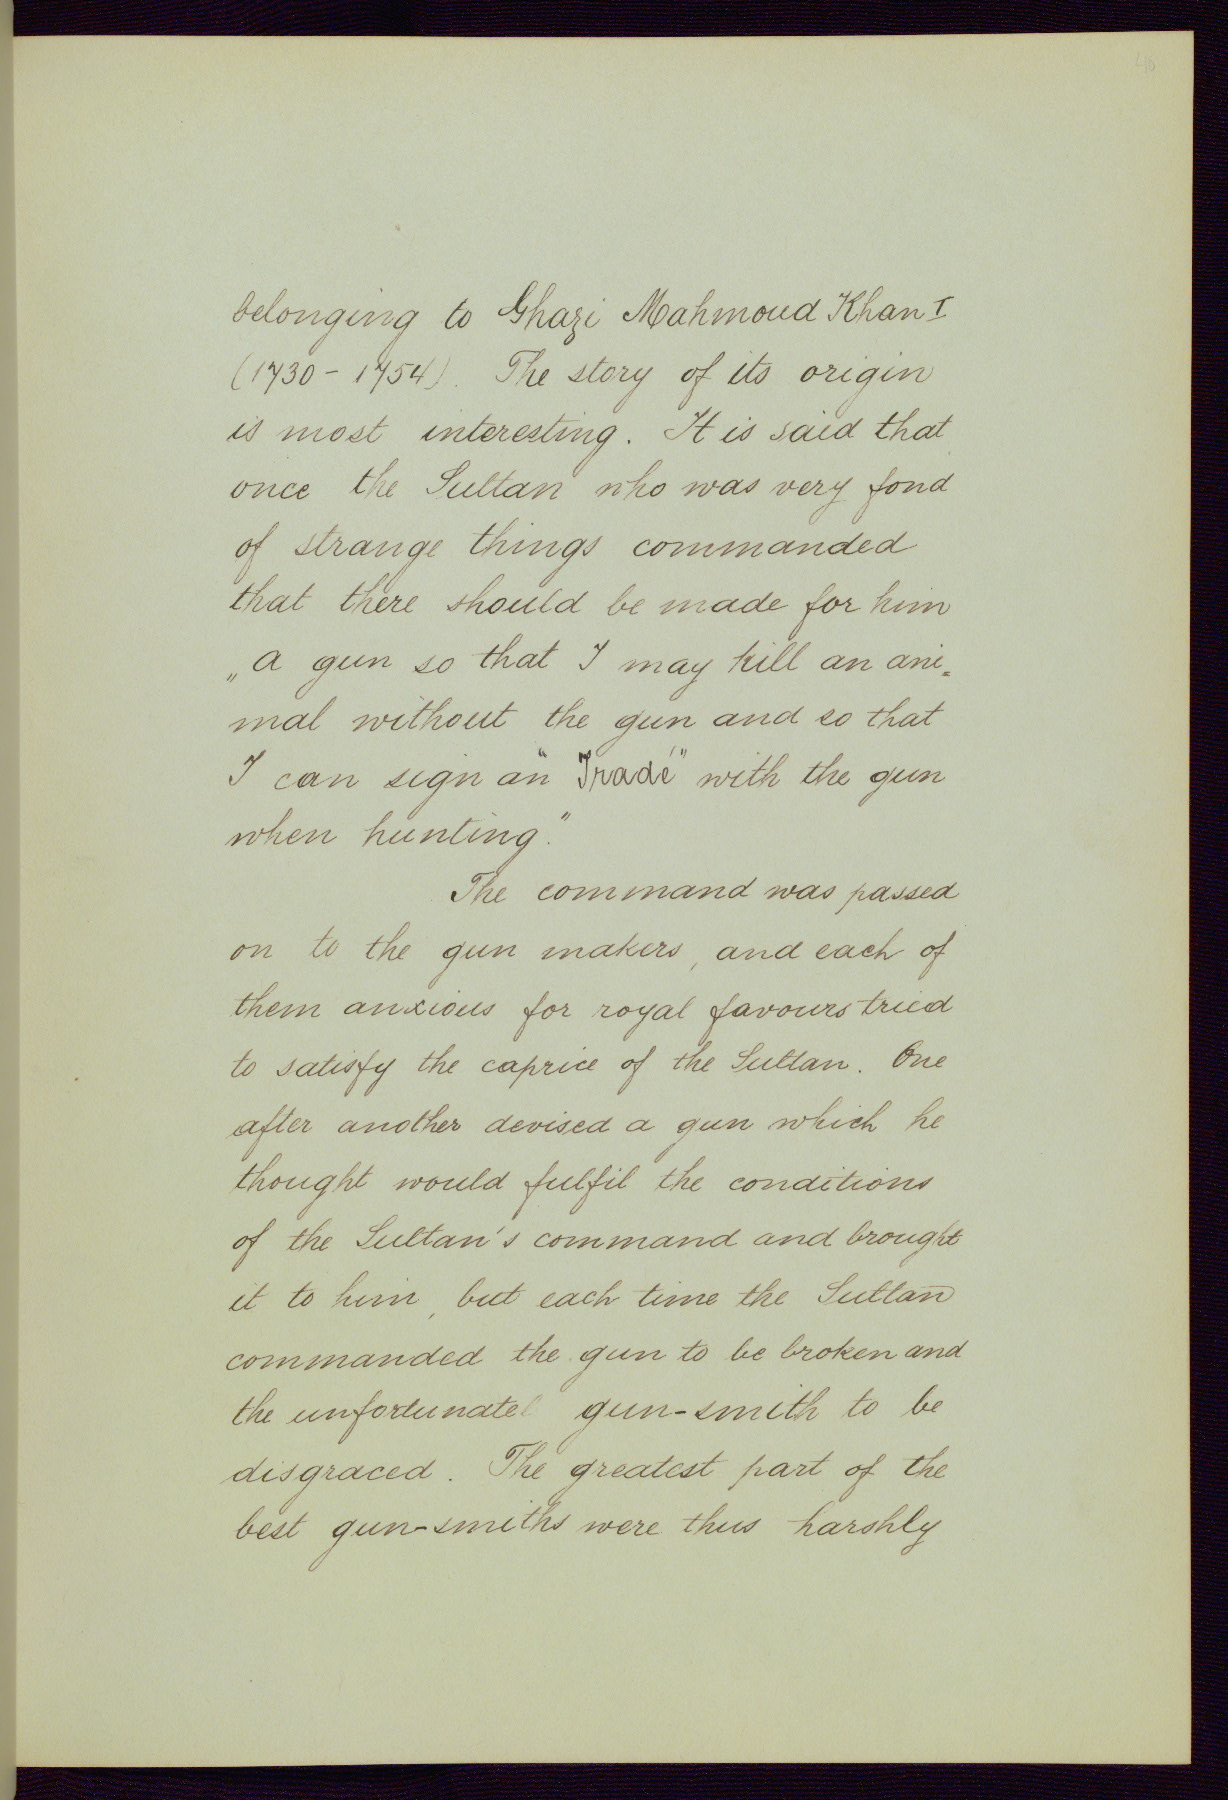 belonging to Ghazi Mahmoud Khan I
(1730 - 1754). The story of its origin
is most interesting. It is said that
once the Sultan who was very fond
of strange things commanded
that there should be made for him
„a gun so that I may kill an ani=
mal without the gun and so that
I can sign an "Iradé" with the gun
when hunting".
The command was passed
on to the gun makers, and each of
them anxious for royal favours tried
to satisfy the caprice of the Sultan. One
after another devised a gun which he
thought would fulfil the conditions
of the Sultan's command and brought
it to him, but each time the Sultan
commanded the gun to be broken and
the unfortunate gun-smith to be
disgraced. The greatest part of the
best gun-smiths were thus harshly